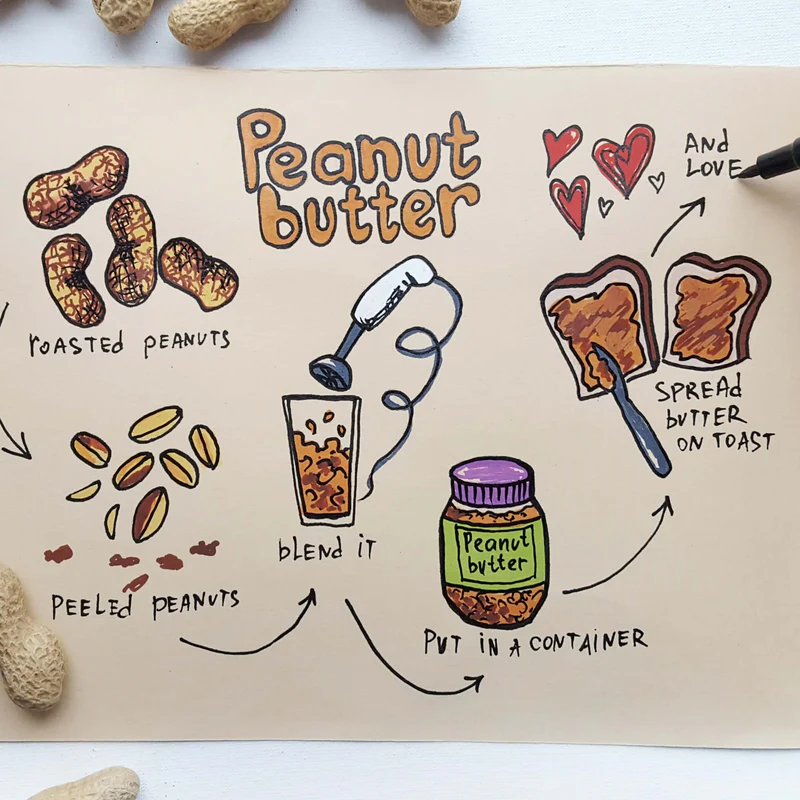 Peanut
butter
roASTEd pEANUTS
pEELEd pEANUTS
bLENd iT
Peanut
butter
PUT iN A CONTAiNER
SPREAd
bUTTER
ON TOAST
ANd
LOVE